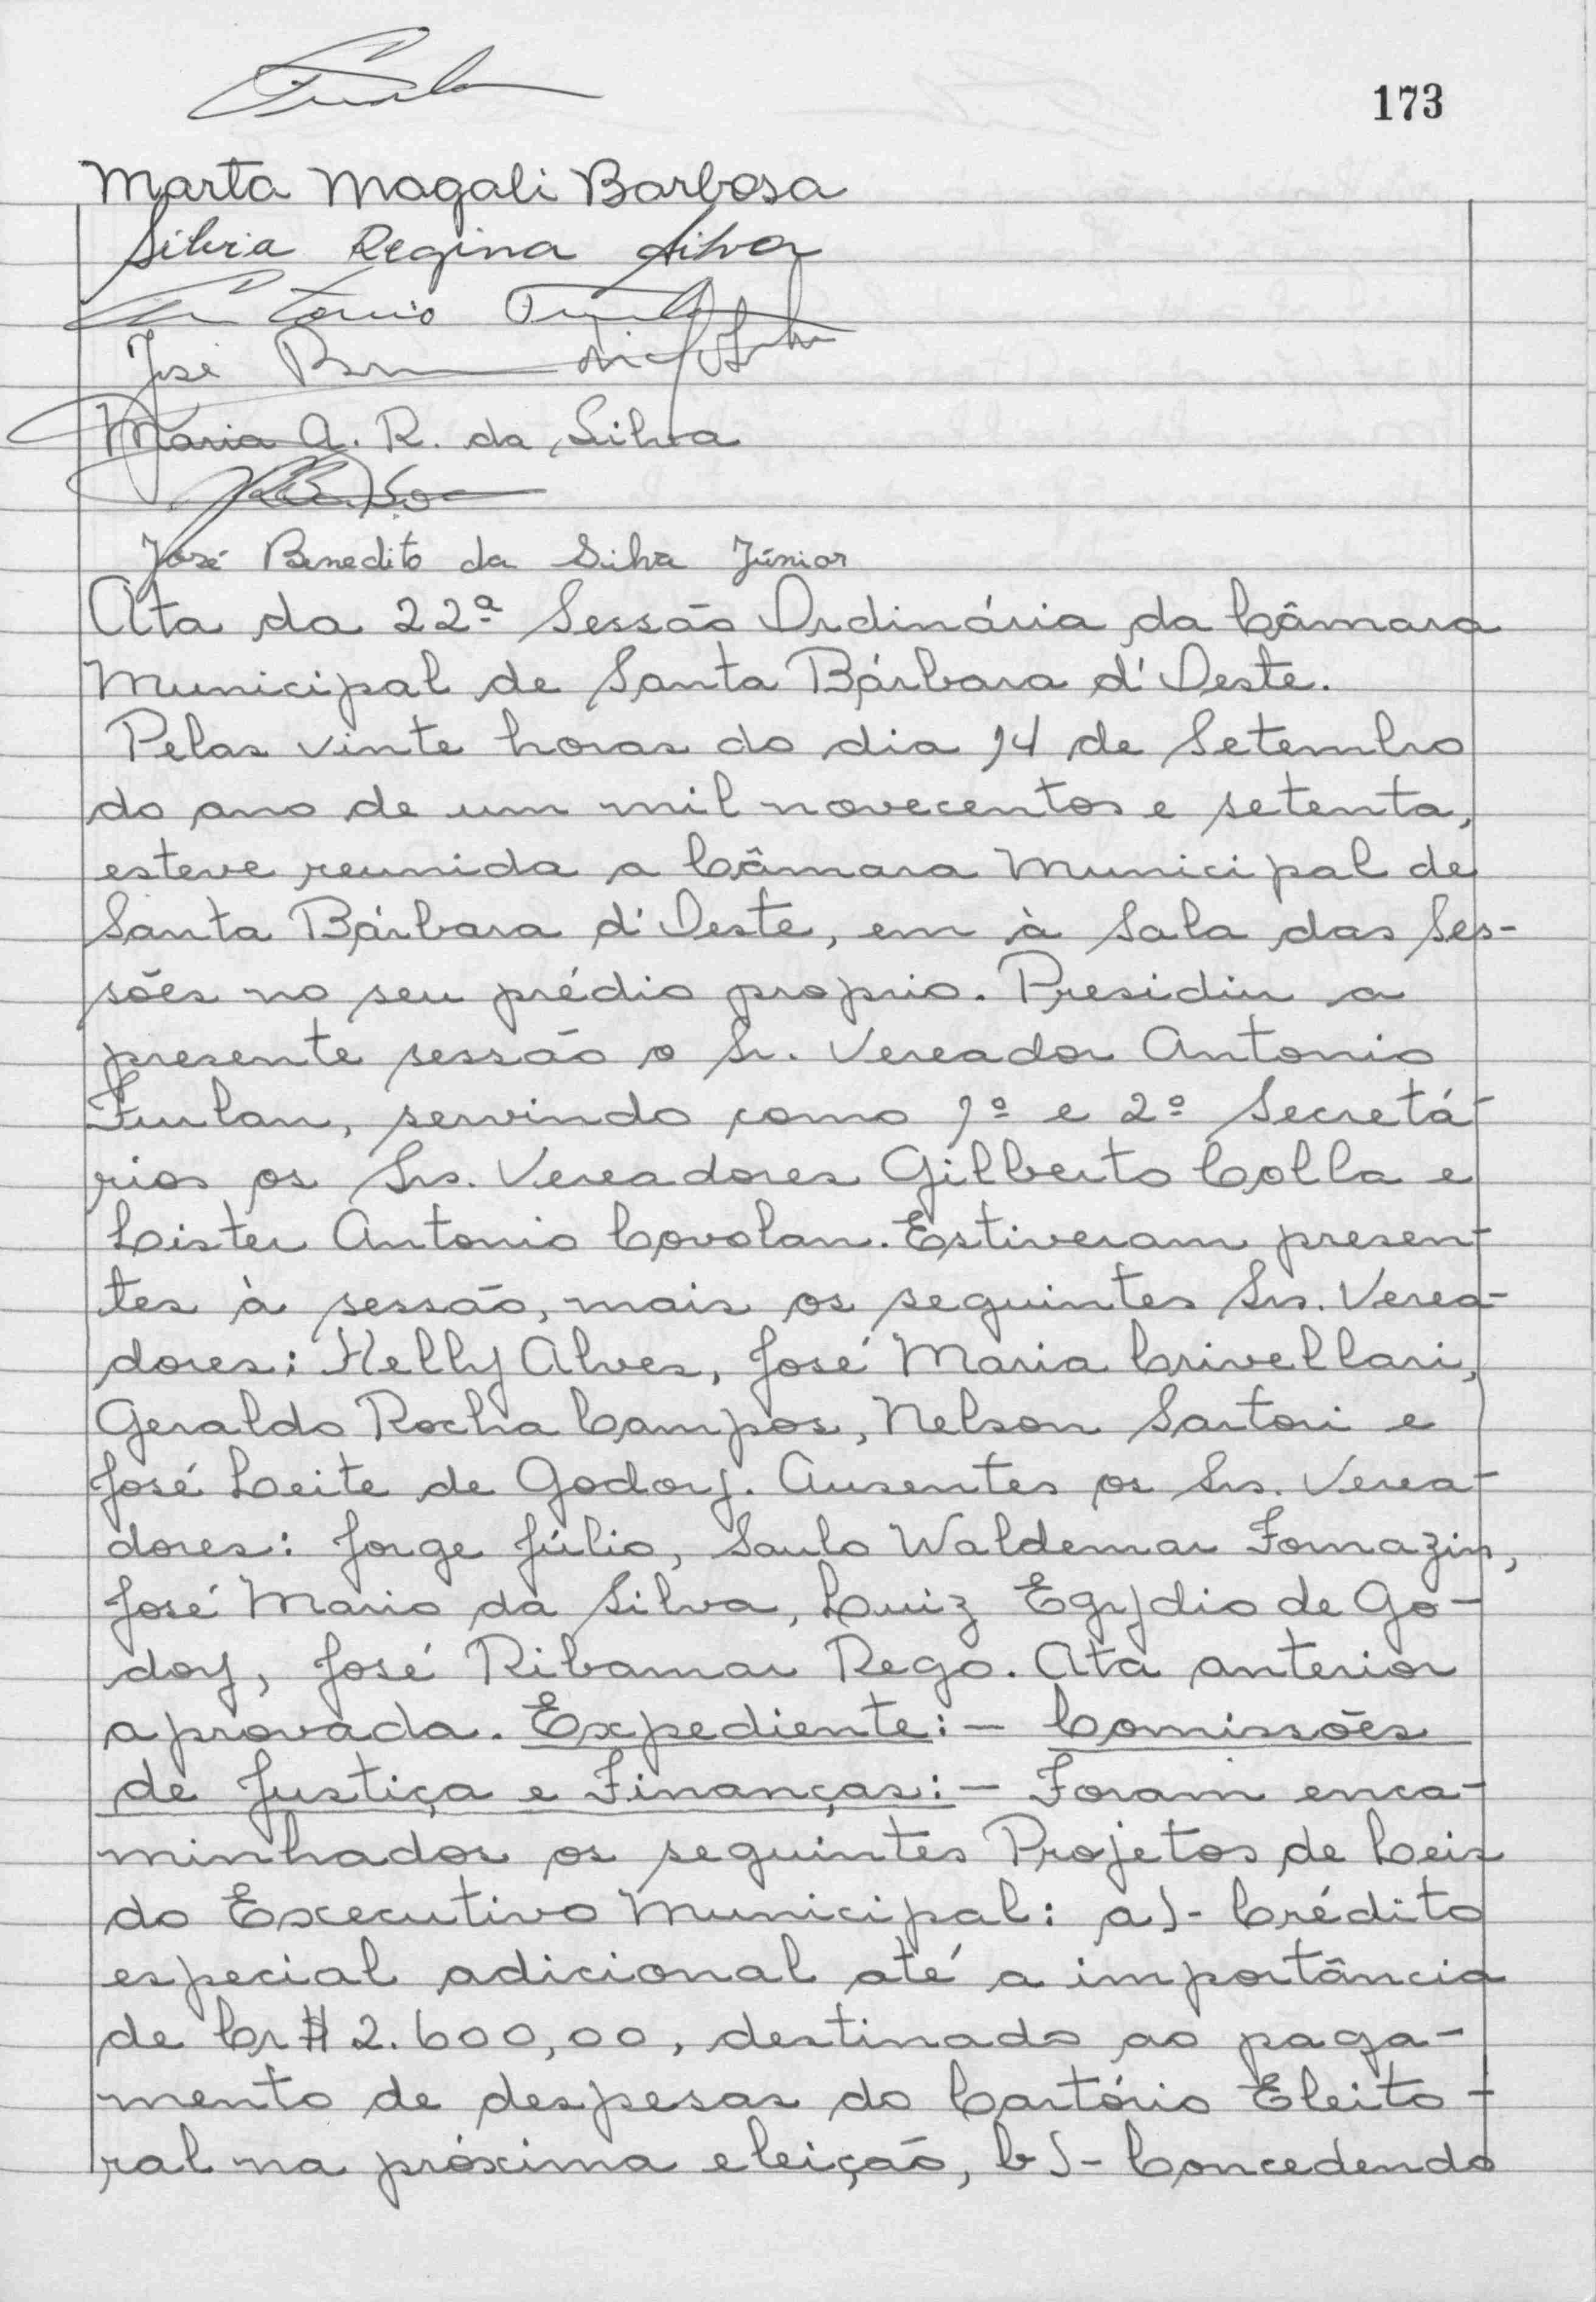 Furlan
173
Marta Magali Barbosa
Silvia Regina Silva
Antonio Furlan
José
Maria A. R. da Silva
José Benedito da Silva Júnior
Ata da 22ª Sessão Ordinária da Câmara
Municipal de Santa Bárbara d'Oeste.
Pelas vinte horas do dia 14 de Setembro
do ano de um mil novecentos e setenta,
esteve reunida a Câmara Municipal de
Santa Bárbara d'Oeste, em à Sala das Ses-
sões no seu prédio proprio. Presidiu a
presente sessão o Sr. Vereador Antonio
Furlan, servindo como 1º e 2º Secretá-
rios os Srs. Vereadores Gilberto Colla e
Lister Antonio Covolan. Estiveram presen-
tes à sessão, mais os seguintes Srs. Verea-
dores: Kelly Alves, José Maria Crivellari,
Geraldo Rocha Campos, Nelson Sartori e
José Leite de Godoy. Ausentes os Srs. Verea-
dores: Jorge Júlio, Saulo Waldemar Fornazin,
José Mario da Silva, Luiz Egydio de Go-
doy, José Ribamar Rego. Ata anterior
aprovada. Expediente:- Comissões
de Justiça e Finanças:- Foram enca-
minhados os seguintes Projetos de Leis
do Executivo Municipal: a)- Crédito
especial adicional até a importância
de Cr$ 2.600,00, destinado ao paga-
mento de despesas do Cartório Eleito-
ral na próxima eleição, b)- Concedendo